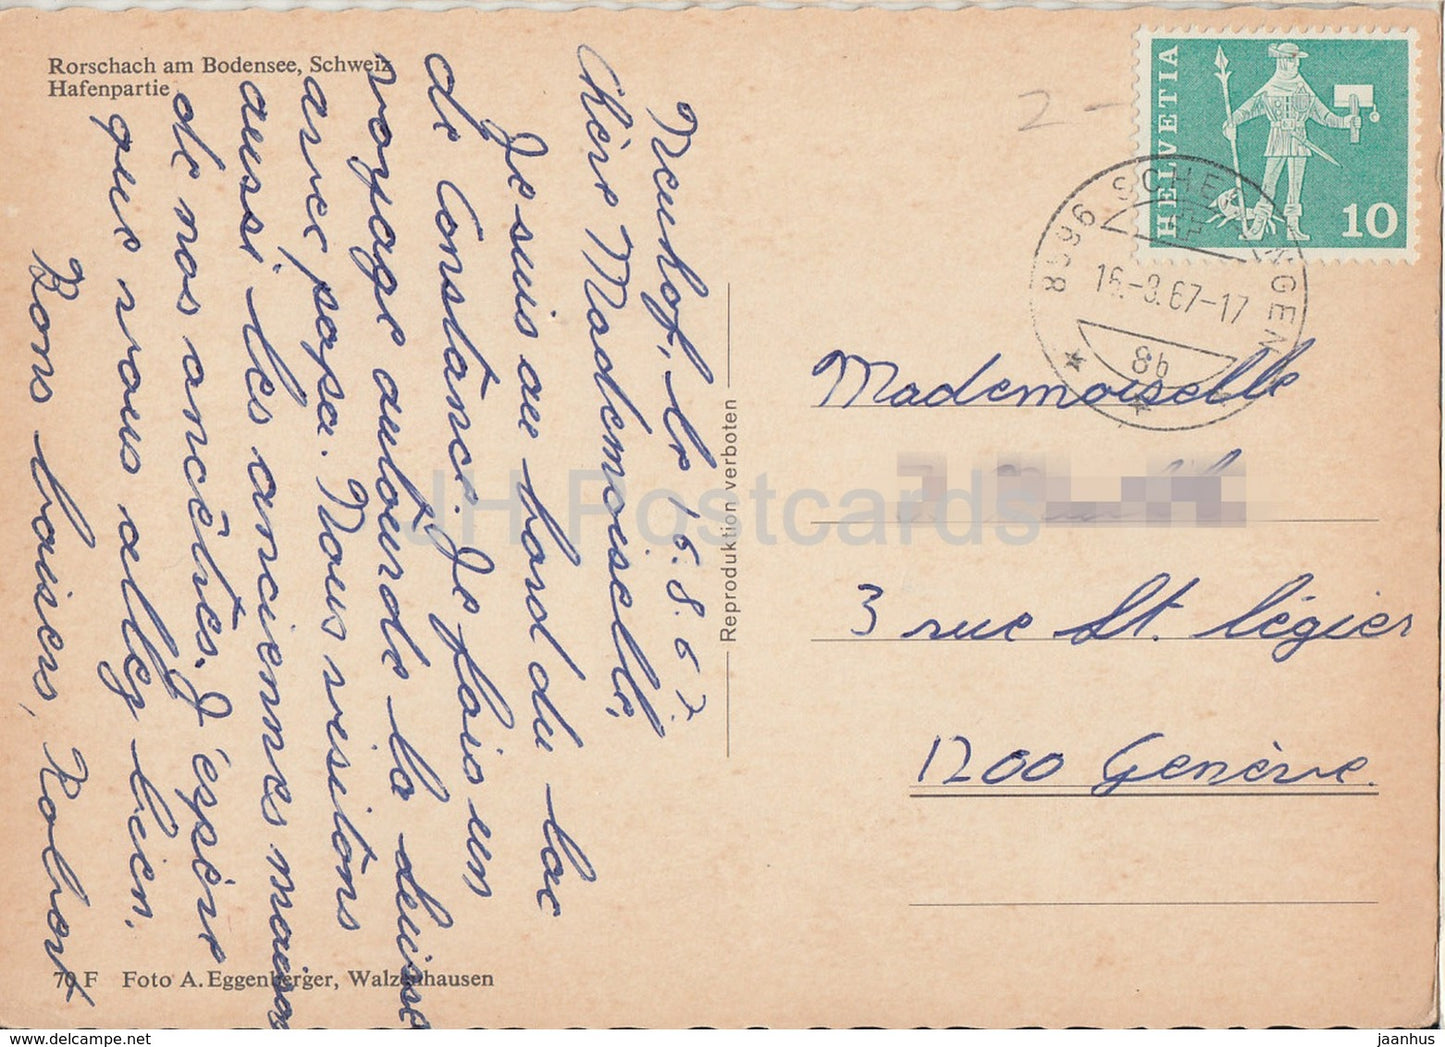 Rorschach am Bodensee, Schweiz
Hafenpartie
Neuhof, le 16.8.67.
Chère Mademoiselle,
Je suis au bord du lac
de Constance. Je fais un
voyage autour de la Suisse
avec papa. Nous visitons
aussi les anciennes maisons
de nos ancêtres. J'espère
que vous allez bien.
Bons baisers, Robert
70 F Foto A. Eggenberger, Walzenhausen
Reproduktion verboten
2-
HELVETIA
10
8596 SCHERZINGEN
16.-8.67-17
8b
Mademoiselle
3 rue St. Légier
1200 Genève.
JH Postcards
www.delcampe.net
jaanhus